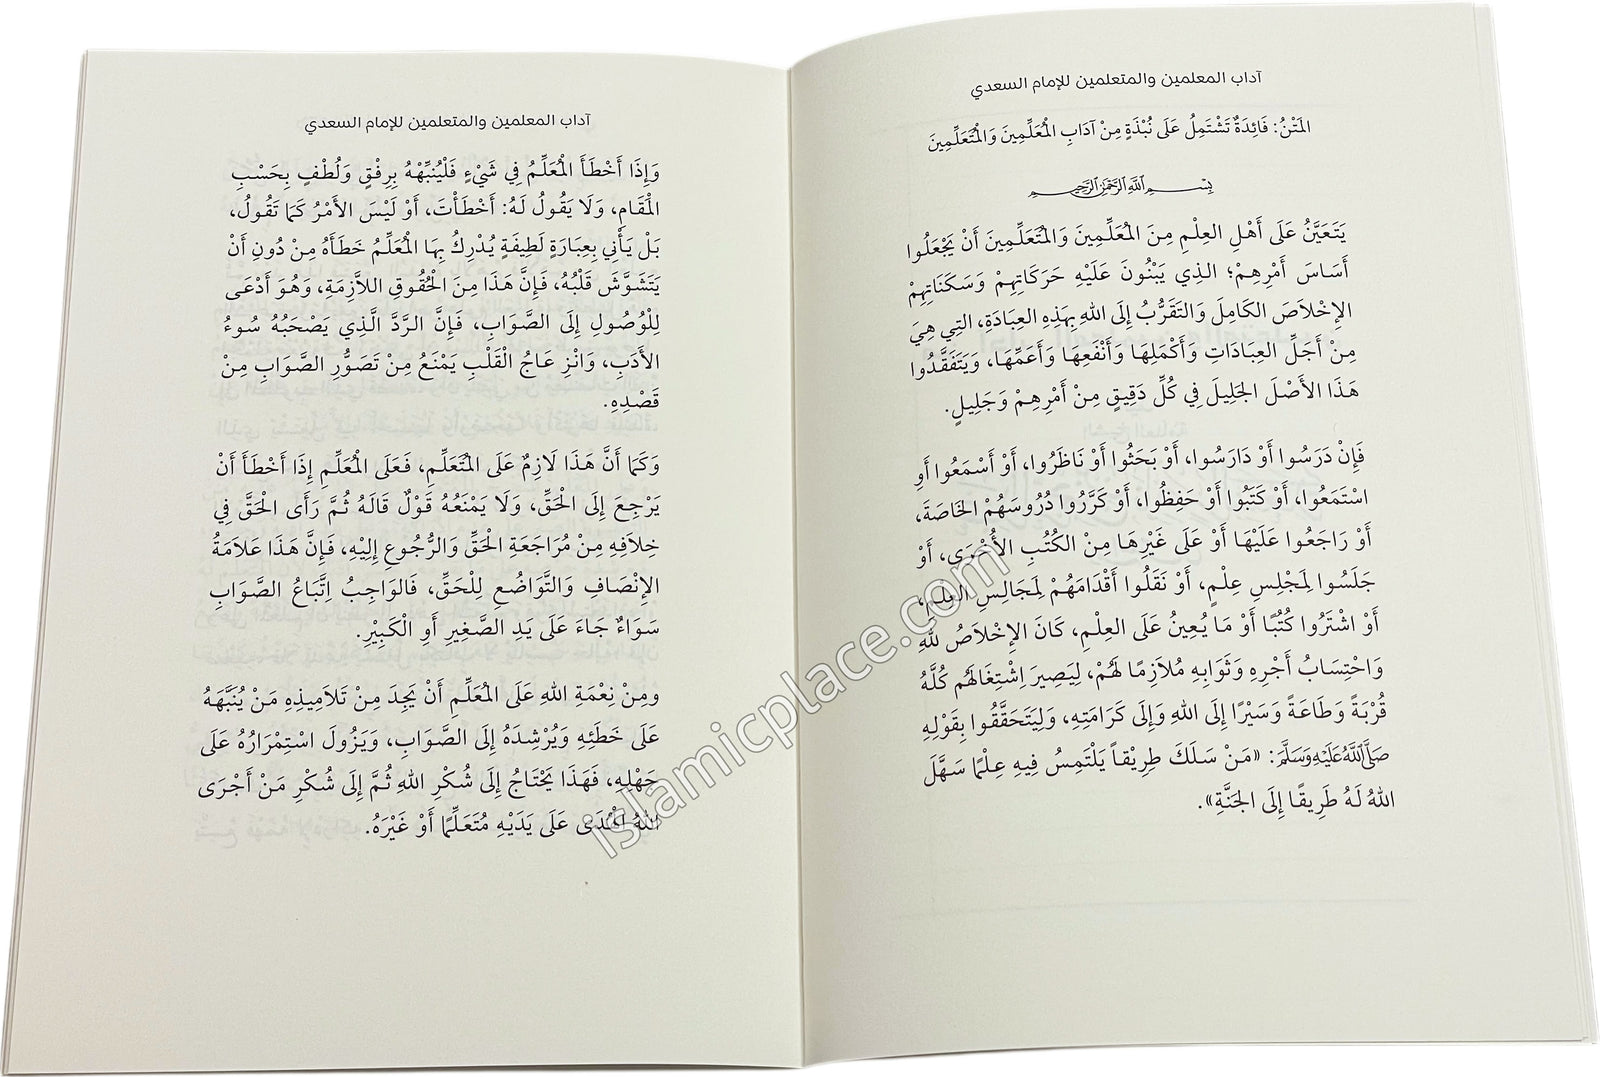 آداب المعلمين والمتعلمين للإمام السعدي
المَتْنُ: فَائِدَةٌ تَشْتَمِلُ عَلَى نُبْذَةٍ مِنْ آدَابِ الْمُعَلِّمِينَ وَالْمُتَعَلِّمِينَ
بِسْمِ اللَّهِ الرَّحْمَٰنِ الرَّحِيمِ
يَتَعَيَّنُ عَلَى أَهْلِ العِلْمِ مِنَ المُعَلِّمِينَ وَالمُتَعَلِّمِينَ أَنْ يَجْعَلُوا
أَسَاسَ أَمْرِهِمْ؛ الذِي يَبْنُونَ عَلَيْهِ حَرَكَاتِهِمْ وَسَكَنَاتِهِمْ
الإِخْلَاصَ الكَامِلَ وَالتَقَرُّبُ إِلَى اللهِ بِهَذِهِ العِبَادَةِ، التِي هِيَ
مِنْ أَجَلِّ العِبَادَاتِ وَأَكْمَلِهَا وَأَنْفَعِهَا وَأَعَمِّهَا، وَيَتَفَقَّدُوا
هَذَا الأَصْلَ الجَلِيلَ فِي كُلِّ دَقِيقٍ مِنْ أَمْرِهِمْ وَجَلِيلٍ.
فَإِنْ دَرَسُوا أَوْ دَارَسُوا، أَوْ بَحَثُوا أَوْ نَاظَرُوا، أَوْ أَسْمَعُوا أَوِ
اسْتَمَعُوا، أَوْ كَتَبُوا أَوْ حَفِظُوا، أَوْ كَرَّرُوا دُرُوسَهُمْ الخَاصَةَ،
أَوْ رَاجَعُوا عَلَيْهَا أَوْ عَلَى غَيْرِهَا مِنْ الكُتُبِ الأُخْرَى، أَوْ
جَلَسُوا لِمَجْلِسِ عِلْمٍ، أَوْ نَقَلُوا أَقْدَامَهُمْ لِمَجَالِسِ العِلْمِ،
أَوْ اشْتَرُوا كُتُبًا أَوْ مَا يُعِينُ عَلَى العِلْمِ، كَانَ الإِخْلَاصُ للهِ
وَاحْتِسَابُ أَجْرِهِ وَثَوَابِهِ مُلَازِمًا لَهُمْ، لِيَصِيرَ اِشْتِغَالُهُم كُلُّهُ
قُرْبَةً وَطَاعَةً وَسَيْرًا إِلَى اللهِ وَإِلَى كَرَامَتِهِ، وَلِيَتَحَقَّقُوا بِقَوْلِهِ
صَلَّى اللَّهُ عَلَيْهِ وَسَلَّمَ: «مَنْ سَلَكَ طِرِيقاً يَلْتَمِسُ فِيهِ عِلْمًا سَهَّلَ
اللهُ لَهُ طَرِيقًا إِلَى الجَنَّةِ».
آداب المعلمين والمتعلمين للإمام السعدي
وَإِذَا أَخْطَأَ الْمُعَلِّمُ فِي شَيْءٍ فَلْيُنَبِّهْهُ بِرِفْقٍ وَلُطْفٍ بِحَسْبِ
الْمَقَامِ، وَلَا يَقُولُ لَهُ: أَخْطَأْتَ، أَوْ لَيْسَ الأَمْرُ كَمَا تَقُولُ،
بَلْ يَأْتِي بِعِبَارَةٍ لَطِيفَةٍ يُدْرِكُ بِهَا الْمُعَلِّمُ خَطَأَهُ مِنْ دُونِ أَنْ
يَتَشَوَّشَ قَلْبُهُ، فَإِنَّ هَذَا مِنَ الْحُقُوقِ اللاَّزِمَةِ، وَهُوَ أَدْعَى
لِلْوُصُولِ إِلَى الصَّوَابِ، فَإِنَّ الرَّدَّ الَّذِي يَصْحَبُهُ سُوءُ
الأَدَبِ، وَانْزِ عَاجُ القَلْبِ يَمْنَعُ مِنْ تَصَوُّرِ الصَّوَابِ مِنْ
قَصْدِهِ.
وَكَمَا أَنَّ هَذَا لَازِمٌ عَلَى المُتَعَلِّمِ، فَعَلَى الْمُعَلِّمِ إِذَا أَخْطَأَ أَنْ
يَرْجِعَ إِلَى الْحَقِّ، وَلَا يَمْنَعُهُ قَوْلٌ قَالَهُ ثُمَّ رَأَى الْحَقَّ فِي
خِلَافِهِ مِنْ مُرَاجَعَةِ الْحَقِّ وَالرُّجُوعِ إِلَيْهِ، فَإِنَّ هَذَا عَلَامَةُ
الإِنْصَافِ وَالتَّوَاضُعِ لِلْحَقِّ، فَالوَاجِبُ اِتِّبَاعُ الصَّوَابِ
سَوَاءٌ جَاءَ عَلَى يَدِ الصَّغِيرِ أَوِ الْكَبِيْرِ.
ومِنْ نِعْمَةِ اللهِ عَلَى المُعَلِّمِ أَنْ يَجِدَ مِنْ تَلَامِيذِهِ مَنْ يُنَبِّهَهُ
عَلَى خَطَئِهِ وَيُرْشِدَهُ إِلَى الصَّوَابِ، وَيَزُولَ اسْتِمْرَارُهُ عَلَى
جَهْلِهِ، فَهَذَا يَحْتَاجُ إِلَى شُكْرِ اللهِ ثُمَّ إِلَى شُكْرِ مَنْ أَجْرَى
اللهُ الْهُدَى عَلَى يَدَيْهِ مُتَعَلِّمًا أَوْ غَيْرَهُ.
islamicplace.com